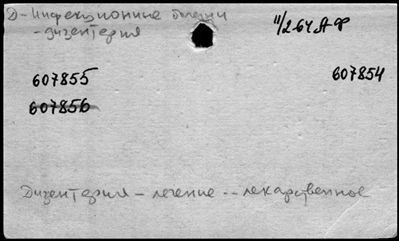 Д-Инфекционные болезни
-дизентерия
11/264 А-Ф
607855
607854
607856
Дизентерия - лечение -- лекарственное